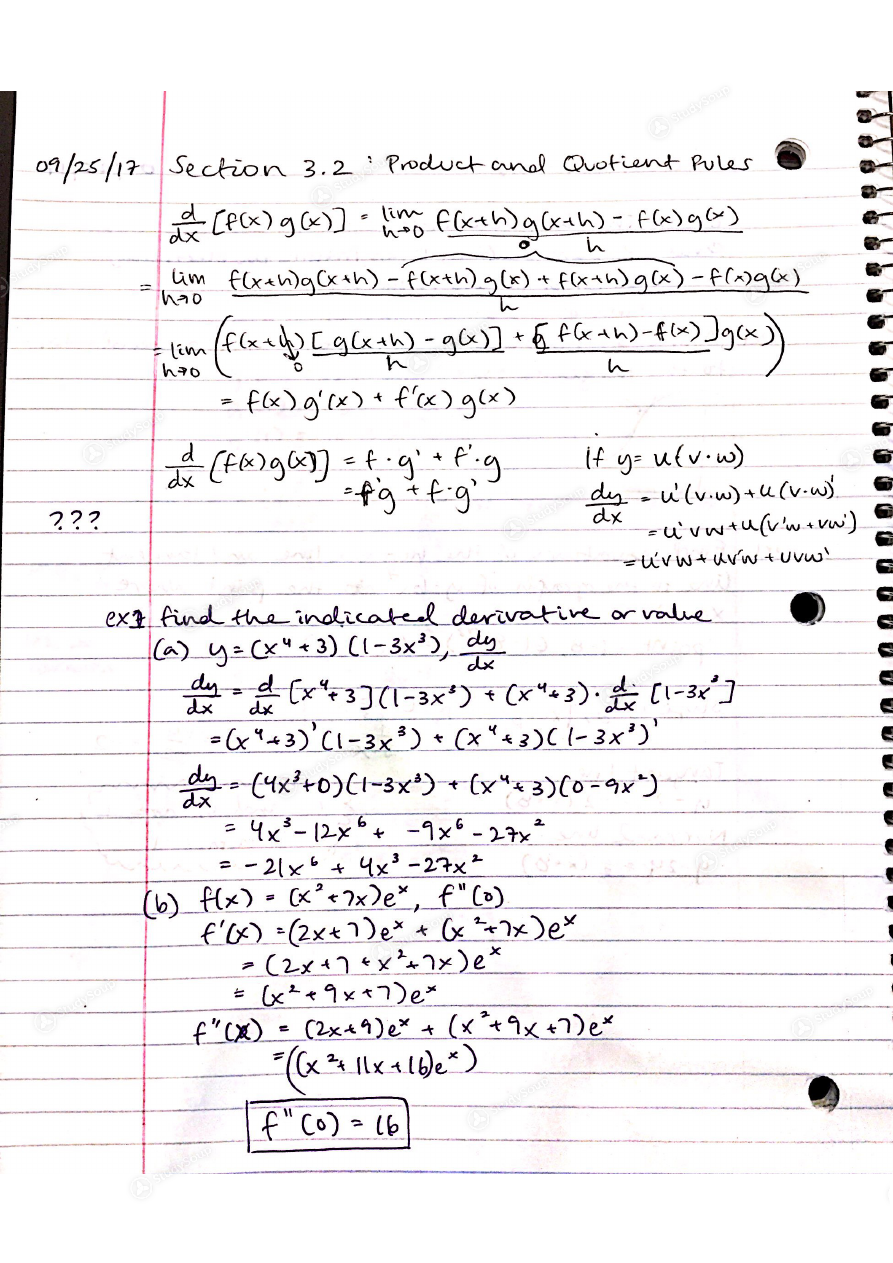 09/25/17 Section 3.2 : Product and Quotient Rules
d/dx [f(x) g(x)] = lim h→0 f(x+h)g(x+h) - f(x)g(x) / h
0
= lim h→0 f(x+h)g(x+h) - f(x+h)g(x) + f(x+h)g(x) - f(x)g(x) / h
= lim h→0 (f(x+h) [g(x+h) - g(x)] / h + [f(x+h) - f(x)] / h g(x))
0
= f(x)g'(x) + f'(x)g(x)
d/dx [f(x)g(x)] = f·g' + f'·g
= f'g + f·g'
if y = u(v·w)
dy/dx = u'(v·w) + u(v·w)'
= u'vw + u(v'w + vw')
= u'vw + uv'w + uvw'
???
ex1 find the indicated derivative or value
(a) y = (x⁴+3)(1-3x³), dy/dx
dy/dx = d/dx [x⁴+3](1-3x³) + (x⁴+3)· d/dx [1-3x³]
= (x⁴+3)'(1-3x³) + (x⁴+3)(1-3x³)'
dy/dx = (4x³+0)(1-3x³) + (x⁴+3)(0-9x²)
= 4x³ - 12x⁶ + -9x⁶ - 27x²
= -21x⁶ + 4x³ - 27x²
(b) f(x) = (x²+7x)eˣ, f"(0)
f'(x) = (2x+7)eˣ + (x²+7x)eˣ
= (2x+7+x²+7x)eˣ
= (x²+9x+7)eˣ
f"(x) = (2x+9)eˣ + (x²+9x+7)eˣ
= ((x²+11x+16)eˣ)
f"(0) = 16
StudySoup